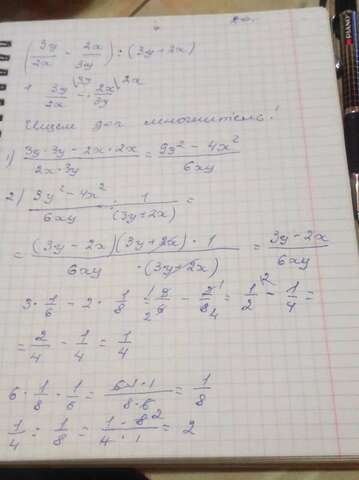 (3y/2x - 2x/3y) : (3y+2x)
1 3y/2x (3y - 2x/3y (2x
Ищем доп множитель!
1) (3y·3y - 2x·2x)/(2x·3y) = (9y² - 4x²)/(6xy)
2) (9y² - 4x²)/(6xy) · 1/(3y+2x) =
= ((3y-2x)(3y+2x)·1)/(6xy·(3y+2x)) = (3y-2x)/(6xy)
3·1/6 - 2·1/8 = 3/6 - 2/8 = 1/2 - 1/4 =
= 2/4 - 1/4 = 1/4
6·1/8·1/6 = (6·1·1)/(8·6) = 1/8
1/4 : 1/8 = (1·8)/(4·1) = 2